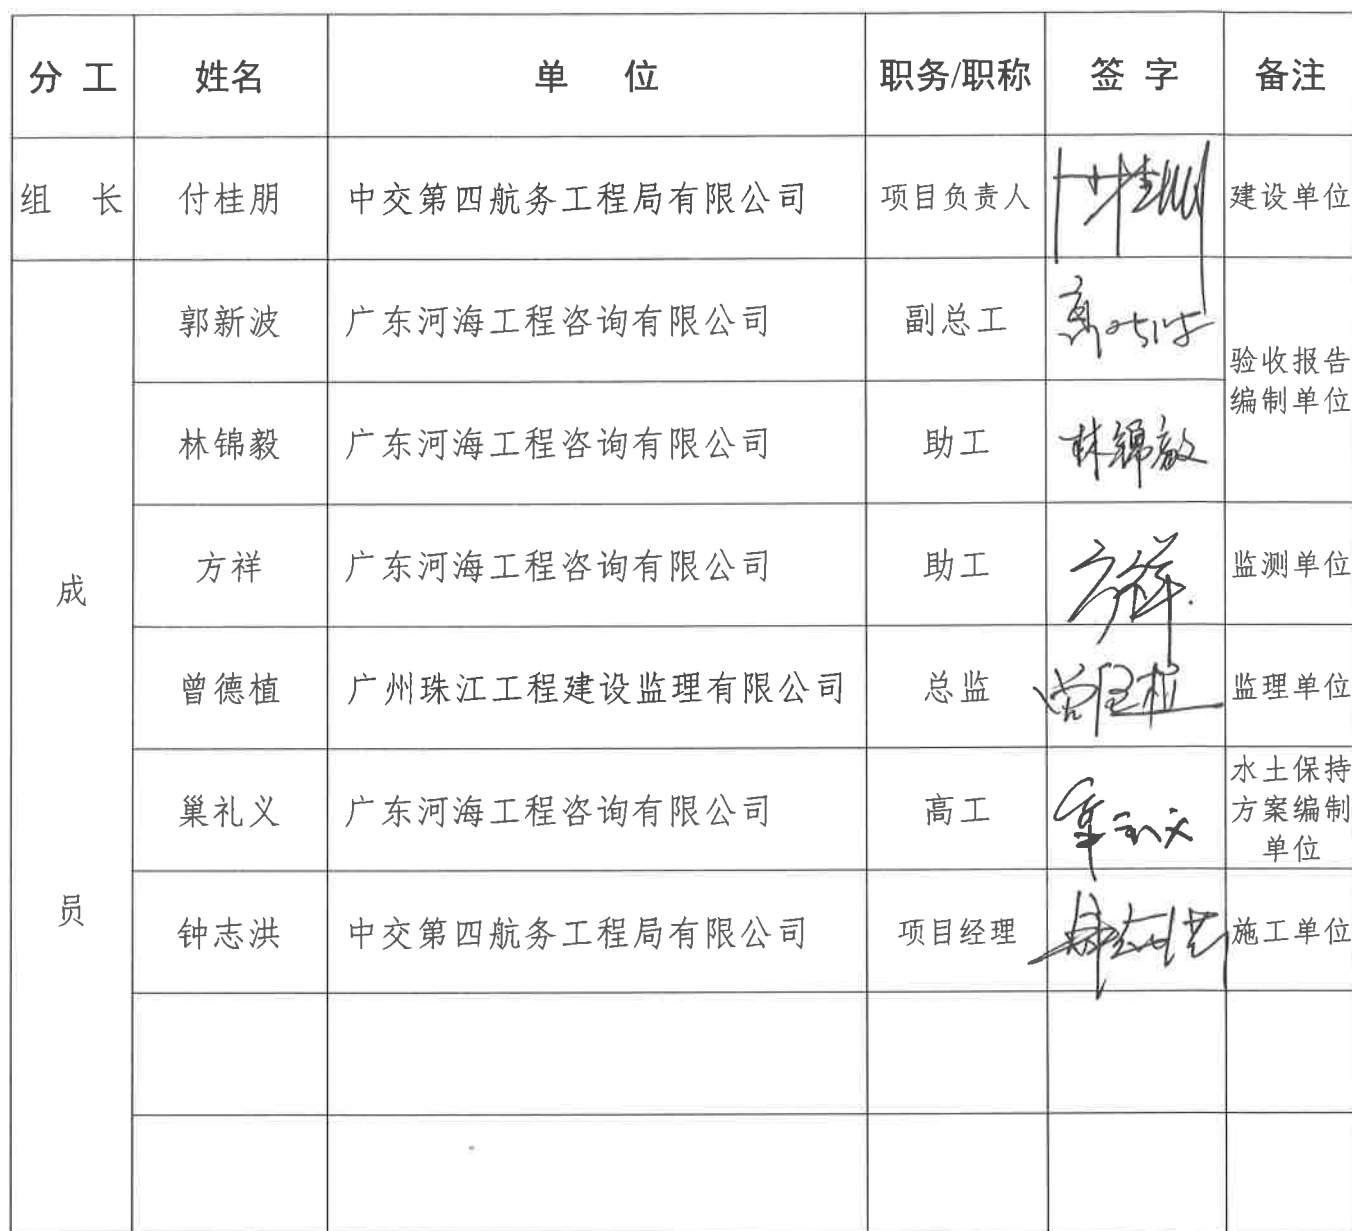 分 工 姓名 单 位 职务/职称 签 字 备注
组 长 付桂朋 中交第四航务工程局有限公司 项目负责人 付桂朋 建设单位
郭新波 广东河海工程咨询有限公司 副总工
验收报告
编制单位
林锦毅 广东河海工程咨询有限公司 助工 林锦毅
成
方祥 广东河海工程咨询有限公司 助工 方祥 监测单位
曾德植 广州珠江工程建设监理有限公司 总监 曾德植 监理单位
巢礼义 广东河海工程咨询有限公司 高工 巢礼义
水土保持
方案编制
单位
员
钟志洪 中交第四航务工程局有限公司 项目经理 钟志洪 施工单位